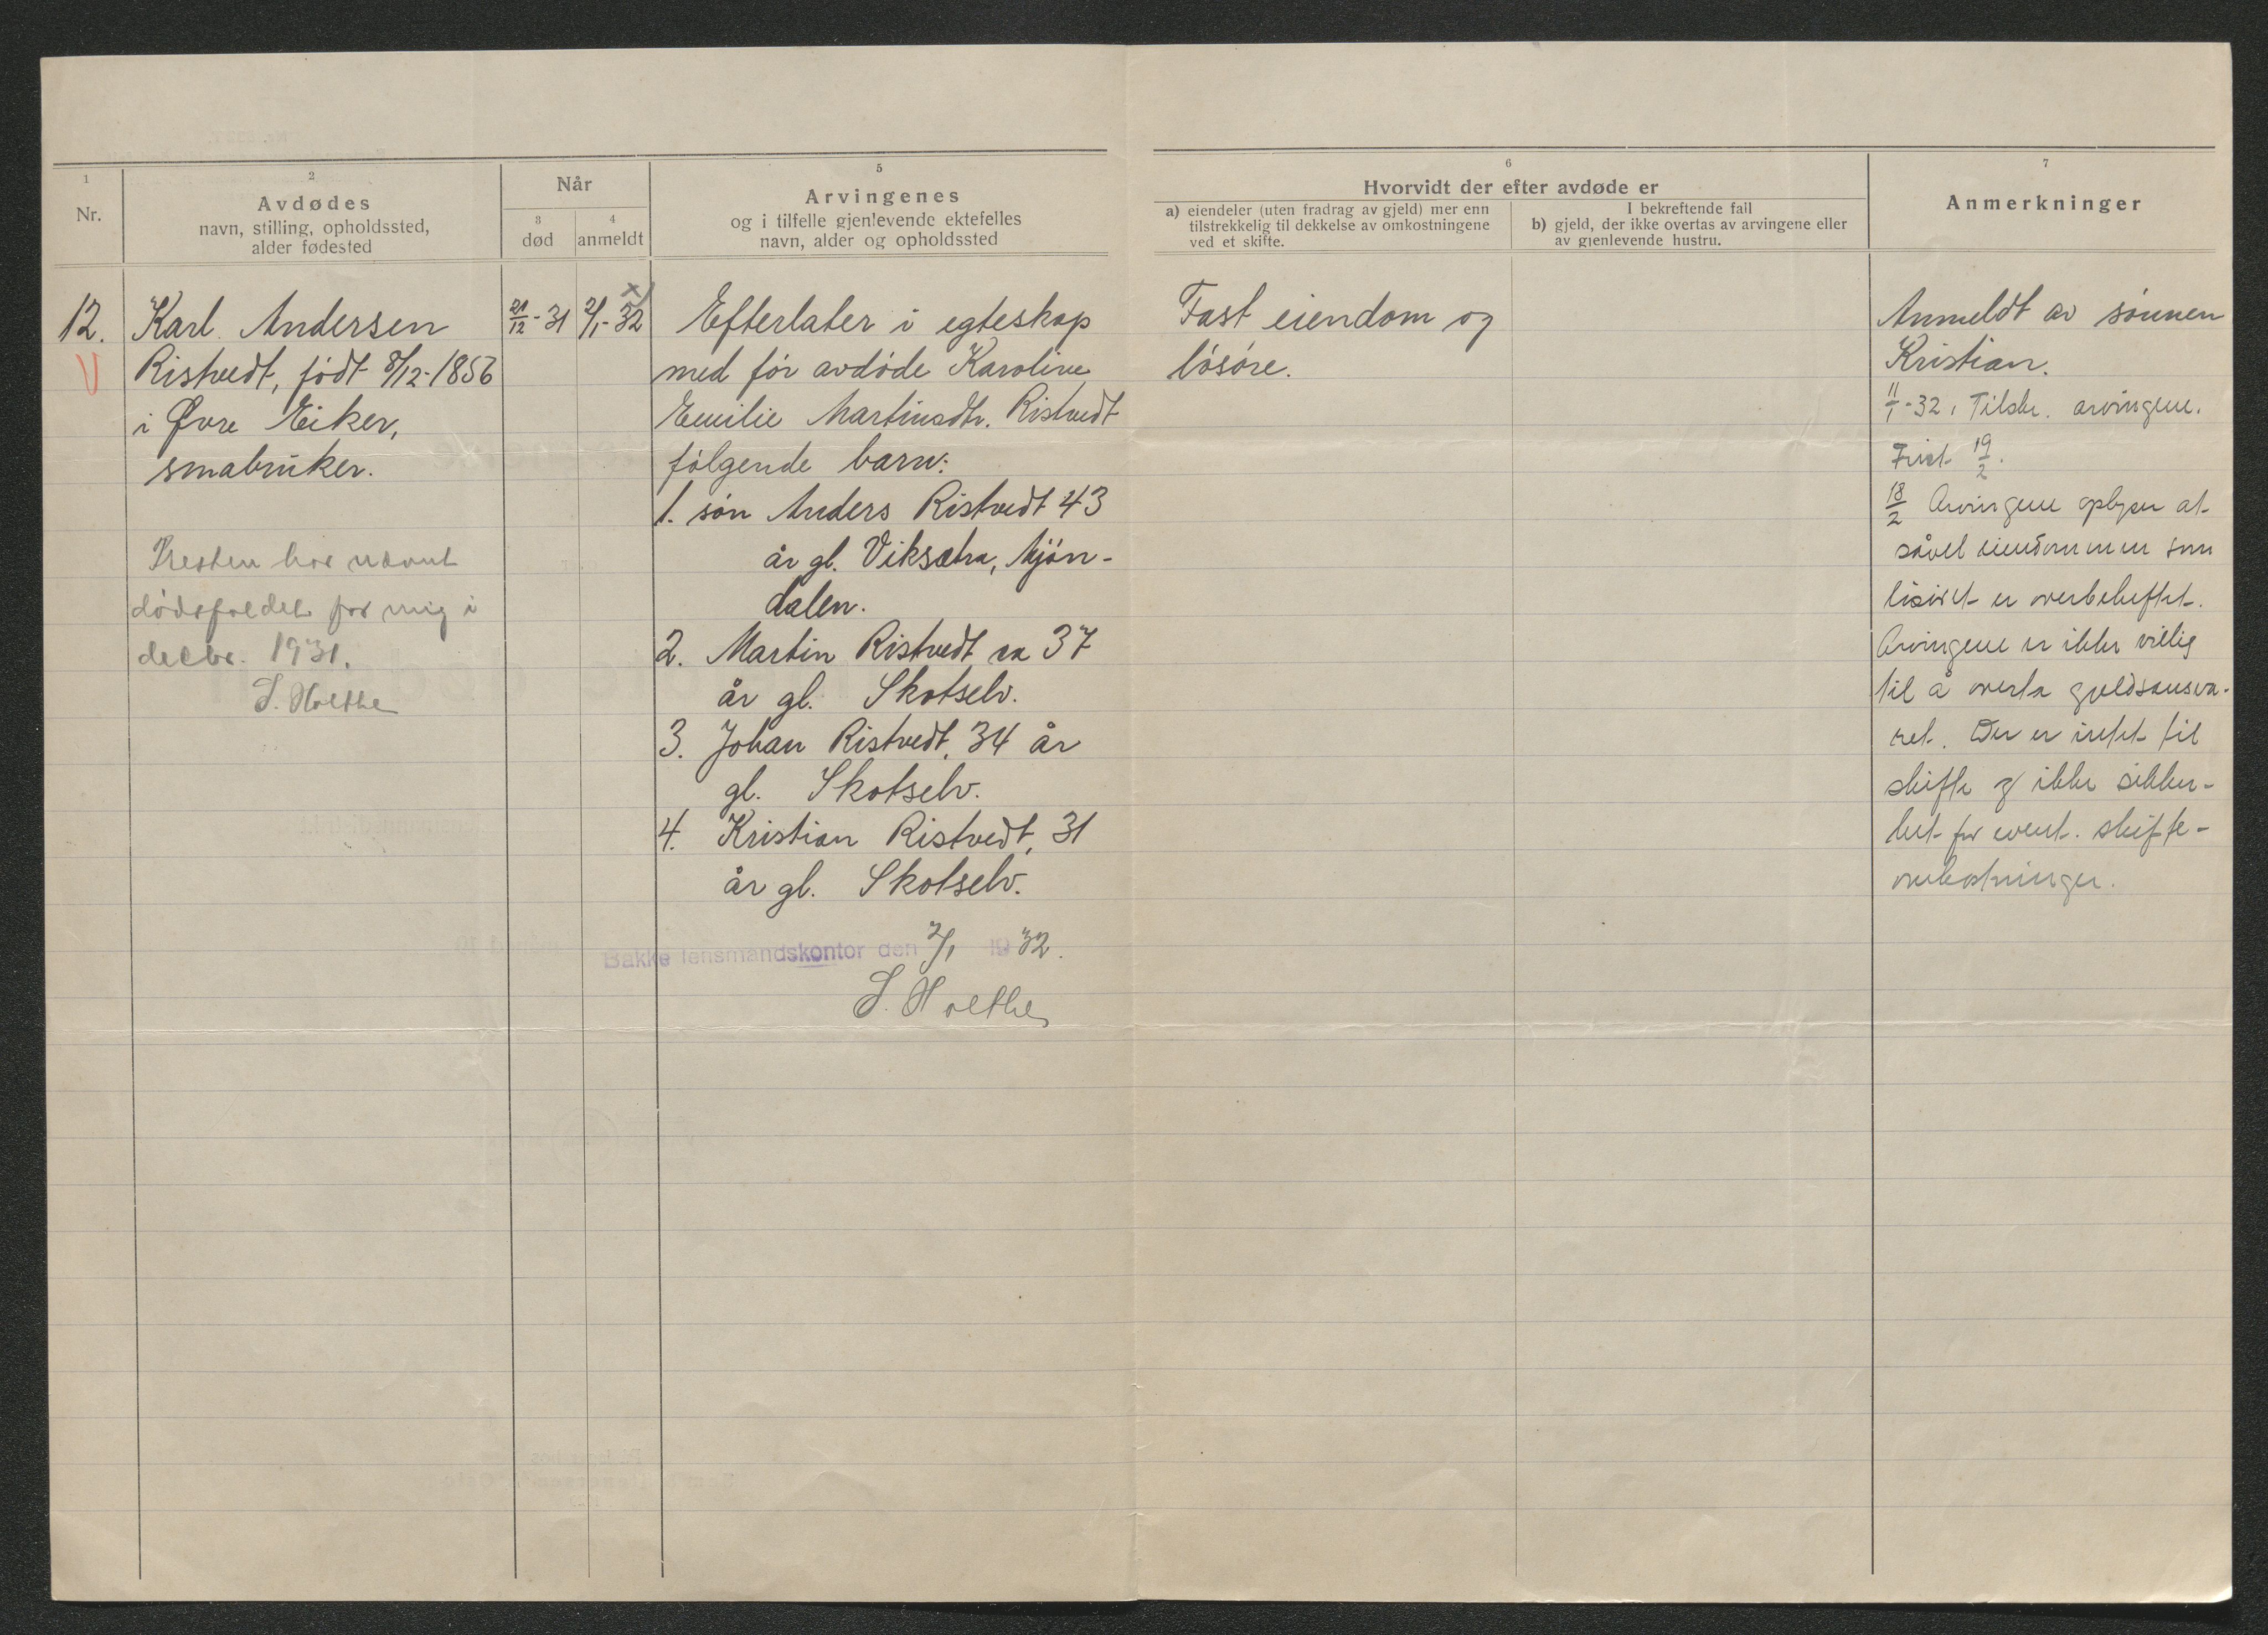 1
Nr.
2
Avdødes
navn, stilling, opholdssted,
alder fødested
Når
3
død
4
anmeldt
5
Arvingenes
og i tilfelle gjenlevende ektefelles
navn, alder og opholdssted
6
Hvorvidt der efter avdøde er
a) eiendeler (uten fradrag av gjeld) mer enn
tilstrekkelig til dekkelse av omkostningene
ved et skifte.
I bekreftende fall
b) gjeld, der ikke overtas av arvingene eller
av gjenlevende hustru.
7
Anmerkninger
12.
V
Karl Andersen
Ristvedt, født 8/12-1856
i Øvre Eiker,
småbruker.
Presten har nævnt
dødsfaldet for mig i
decbr. 1931.
S. Holthe
21/12-31
2/1-32
x)
Efterlater i egteskap
med før avdøde Karoline
Emilie Martinsdtr. Ristvedt
følgende barn:
1. søn Anders Ristvedt 43
år gl. Viksætra, Mjøn-
dalen.
2. Martin Ristvedt ca 37
år gl. Skotselv.
3. Johan Ristvedt, 34 år
gl. Skotselv.
4. Kristian Ristvedt, 31
år gl. Skotselv.
Bakke lensmandskontor den 2/1 1932.
S. Holthe
Fast eiendom og
løsøre.
Anmeldt av sønnen
Kristian.
11/1-32. Tilskr. arvingene.
Frist 19/2.
18/2 Arvingene oplyser at
såvel eiendommen som
løsøret er overbeheftet.
Arvingene er ikke villig
til å overta gjeldsansva-
ret. Der er intet til
skifte og ikke sikker-
het for event. skifte-
omkostninger.